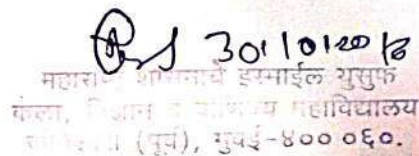 30/10/2018
महाराष्ट्र शासनाचे इस्माईल युसुफ
कला, विज्ञान व वाणिज्य महाविद्यालय
(पूर्व), मुंबई-४०० ०६०.